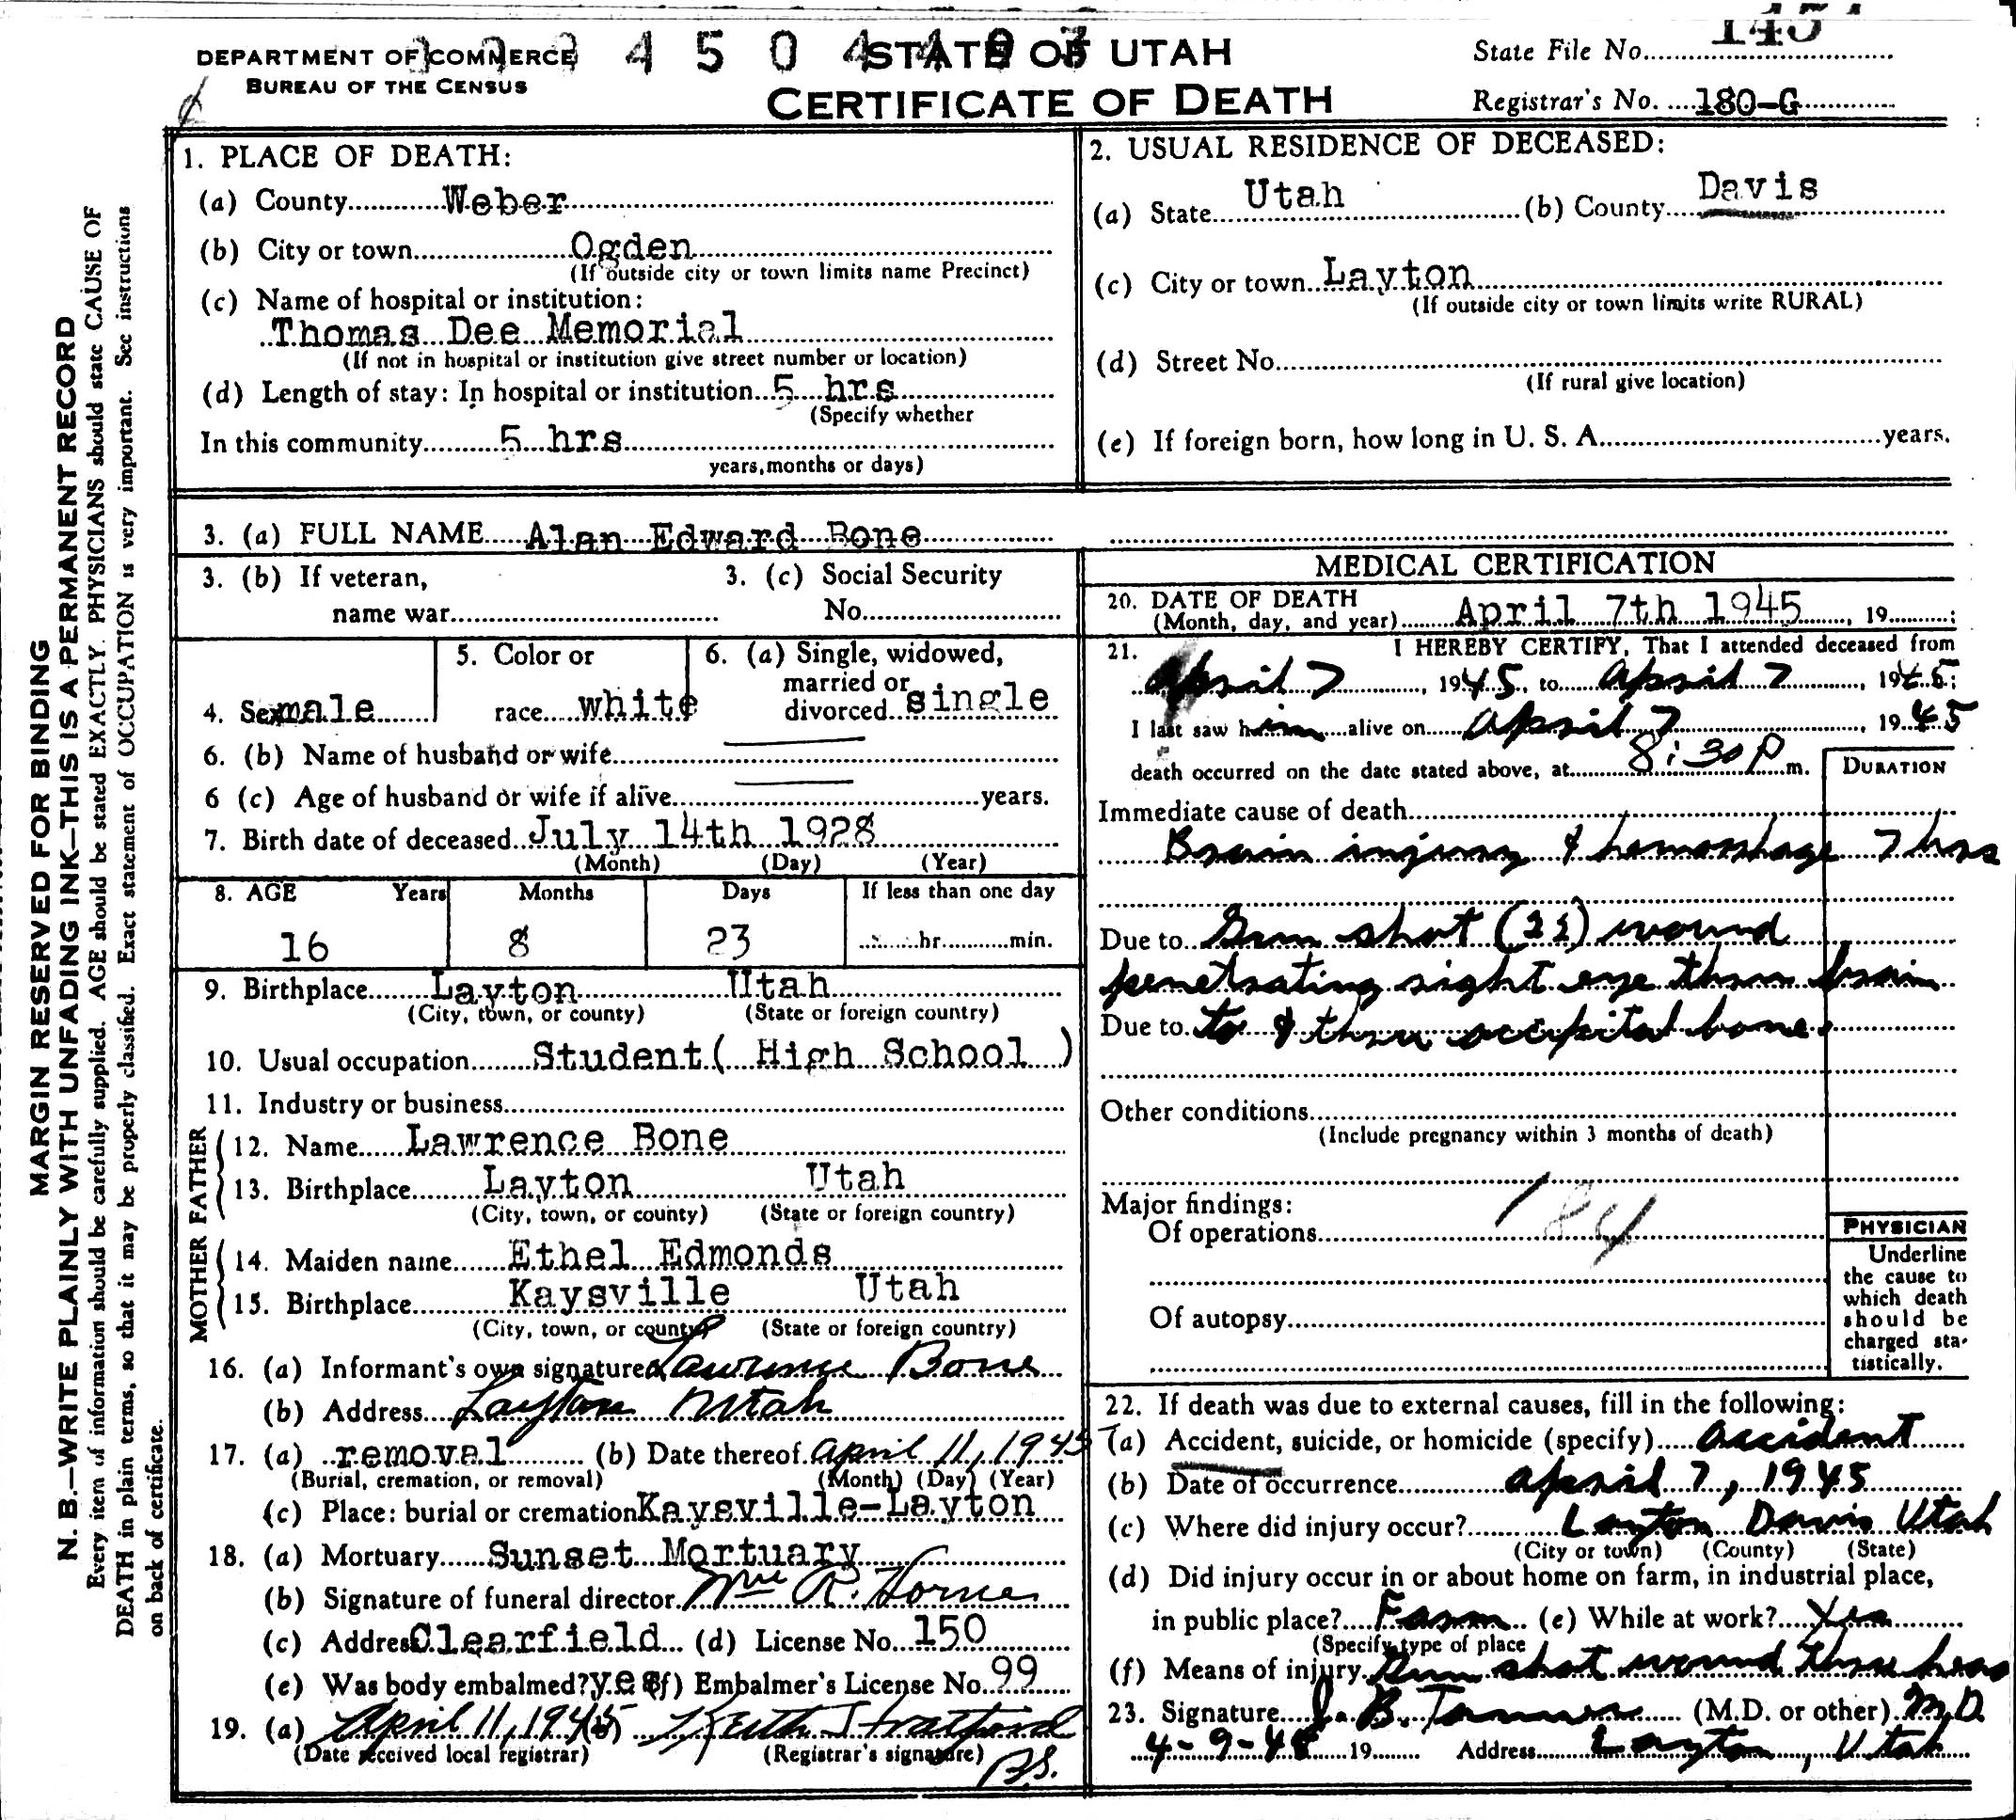 DEPARTMENT OF COMMERCE
BUREAU OF THE CENSUS
STATE OF UTAH
CERTIFICATE OF DEATH
State File No. 145
Registrar's No. 180-G
MARGIN RESERVED FOR BINDING
N. B.—WRITE PLAINLY WITH UNFADING INK—THIS IS A PERMANENT RECORD
Every item of information should be carefully supplied. AGE should be stated EXACTLY. PHYSICIANS should state CAUSE OF
DEATH in plain terms, so that it may be properly classified. Exact statement of OCCUPATION is very important. See instructions
on back of certificate.
1. PLACE OF DEATH:
(a) County Weber
(b) City or town Ogden
(If outside city or town limits name Precinct)
(c) Name of hospital or institution:
Thomas Dee Memorial
(If not in hospital or institution give street number or location)
(d) Length of stay: In hospital or institution 5 hrs
(Specify whether
In this community 5 hrs
years, months or days)
2. USUAL RESIDENCE OF DECEASED:
(a) State Utah (b) County Davis
(c) City or town Layton
(If outside city or town limits write RURAL)
(d) Street No.
(If rural give location)
(e) If foreign born, how long in U. S. A. years.
3. (a) FULL NAME Alan Edward Bone
3. (b) If veteran,
name war
3. (c) Social Security
No.
4. Sex male
5. Color or
race white
6. (a) Single, widowed,
married or
divorced single
6. (b) Name of husband or wife
6 (c) Age of husband or wife if alive years.
7. Birth date of deceased July 14th 1928
(Month) (Day) (Year)
8. AGE Years Months Days If less than one day
16 8 23 hr. min.
9. Birthplace Layton Utah
(City, town, or county) (State or foreign country)
10. Usual occupation Student ( High School )
11. Industry or business
FATHER
12. Name Lawrence Bone
13. Birthplace Layton Utah
(City, town, or county) (State or foreign country)
MOTHER
14. Maiden name Ethel Edmonds
15. Birthplace Kaysville Utah
(City, town, or county) (State or foreign country)
16. (a) Informant's own signature Lawrence Bone
(b) Address Layton Utah
17. (a) removal (b) Date thereof April 11, 1945
(Burial, cremation, or removal) (Month) (Day) (Year)
(c) Place: burial or cremation Kaysville-Layton
18. (a) Mortuary Sunset Mortuary
(b) Signature of funeral director Wm R. Horne
(c) Address Clearfield (d) License No. 150
(e) Was body embalmed? yes (f) Embalmer's License No. 99
19. (a) April 11, 1945 Keith Stratford
(Date received local registrar) (Registrar's signature)
B.S.
MEDICAL CERTIFICATION
20. DATE OF DEATH
(Month, day, and year) April 7th 1945, 19 ;
21. I HEREBY CERTIFY, That I attended deceased from
April 7, 1945, to April 7, 1945;
I last saw him alive on April 7, 1945
death occurred on the date stated above, at 8:30 P m.
DURATION
Immediate cause of death
Brain injury & hemorrhage 7 hrs
Due to Gun shot (22) wound
penetrating right eye thru brain
Due to to & thru occipital bone.
Other conditions
(Include pregnancy within 3 months of death)
Major findings:
Of operations
184
Of autopsy
PHYSICIAN
Underline
the cause to
which death
should be
charged sta-
tistically.
22. If death was due to external causes, fill in the following:
(a) Accident, suicide, or homicide (specify) Accident
(b) Date of occurrence April 7, 1945
(c) Where did injury occur? Layton Davis Utah
(City or town) (County) (State)
(d) Did injury occur in or about home on farm, in industrial place,
in public place? Farm (e) While at work? Yes
(Specify type of place
(f) Means of injury Gun shot wound thru head
23. Signature J. B. Tanner (M.D. or other) M.D.
4-9-45 19 Address Layton, Utah